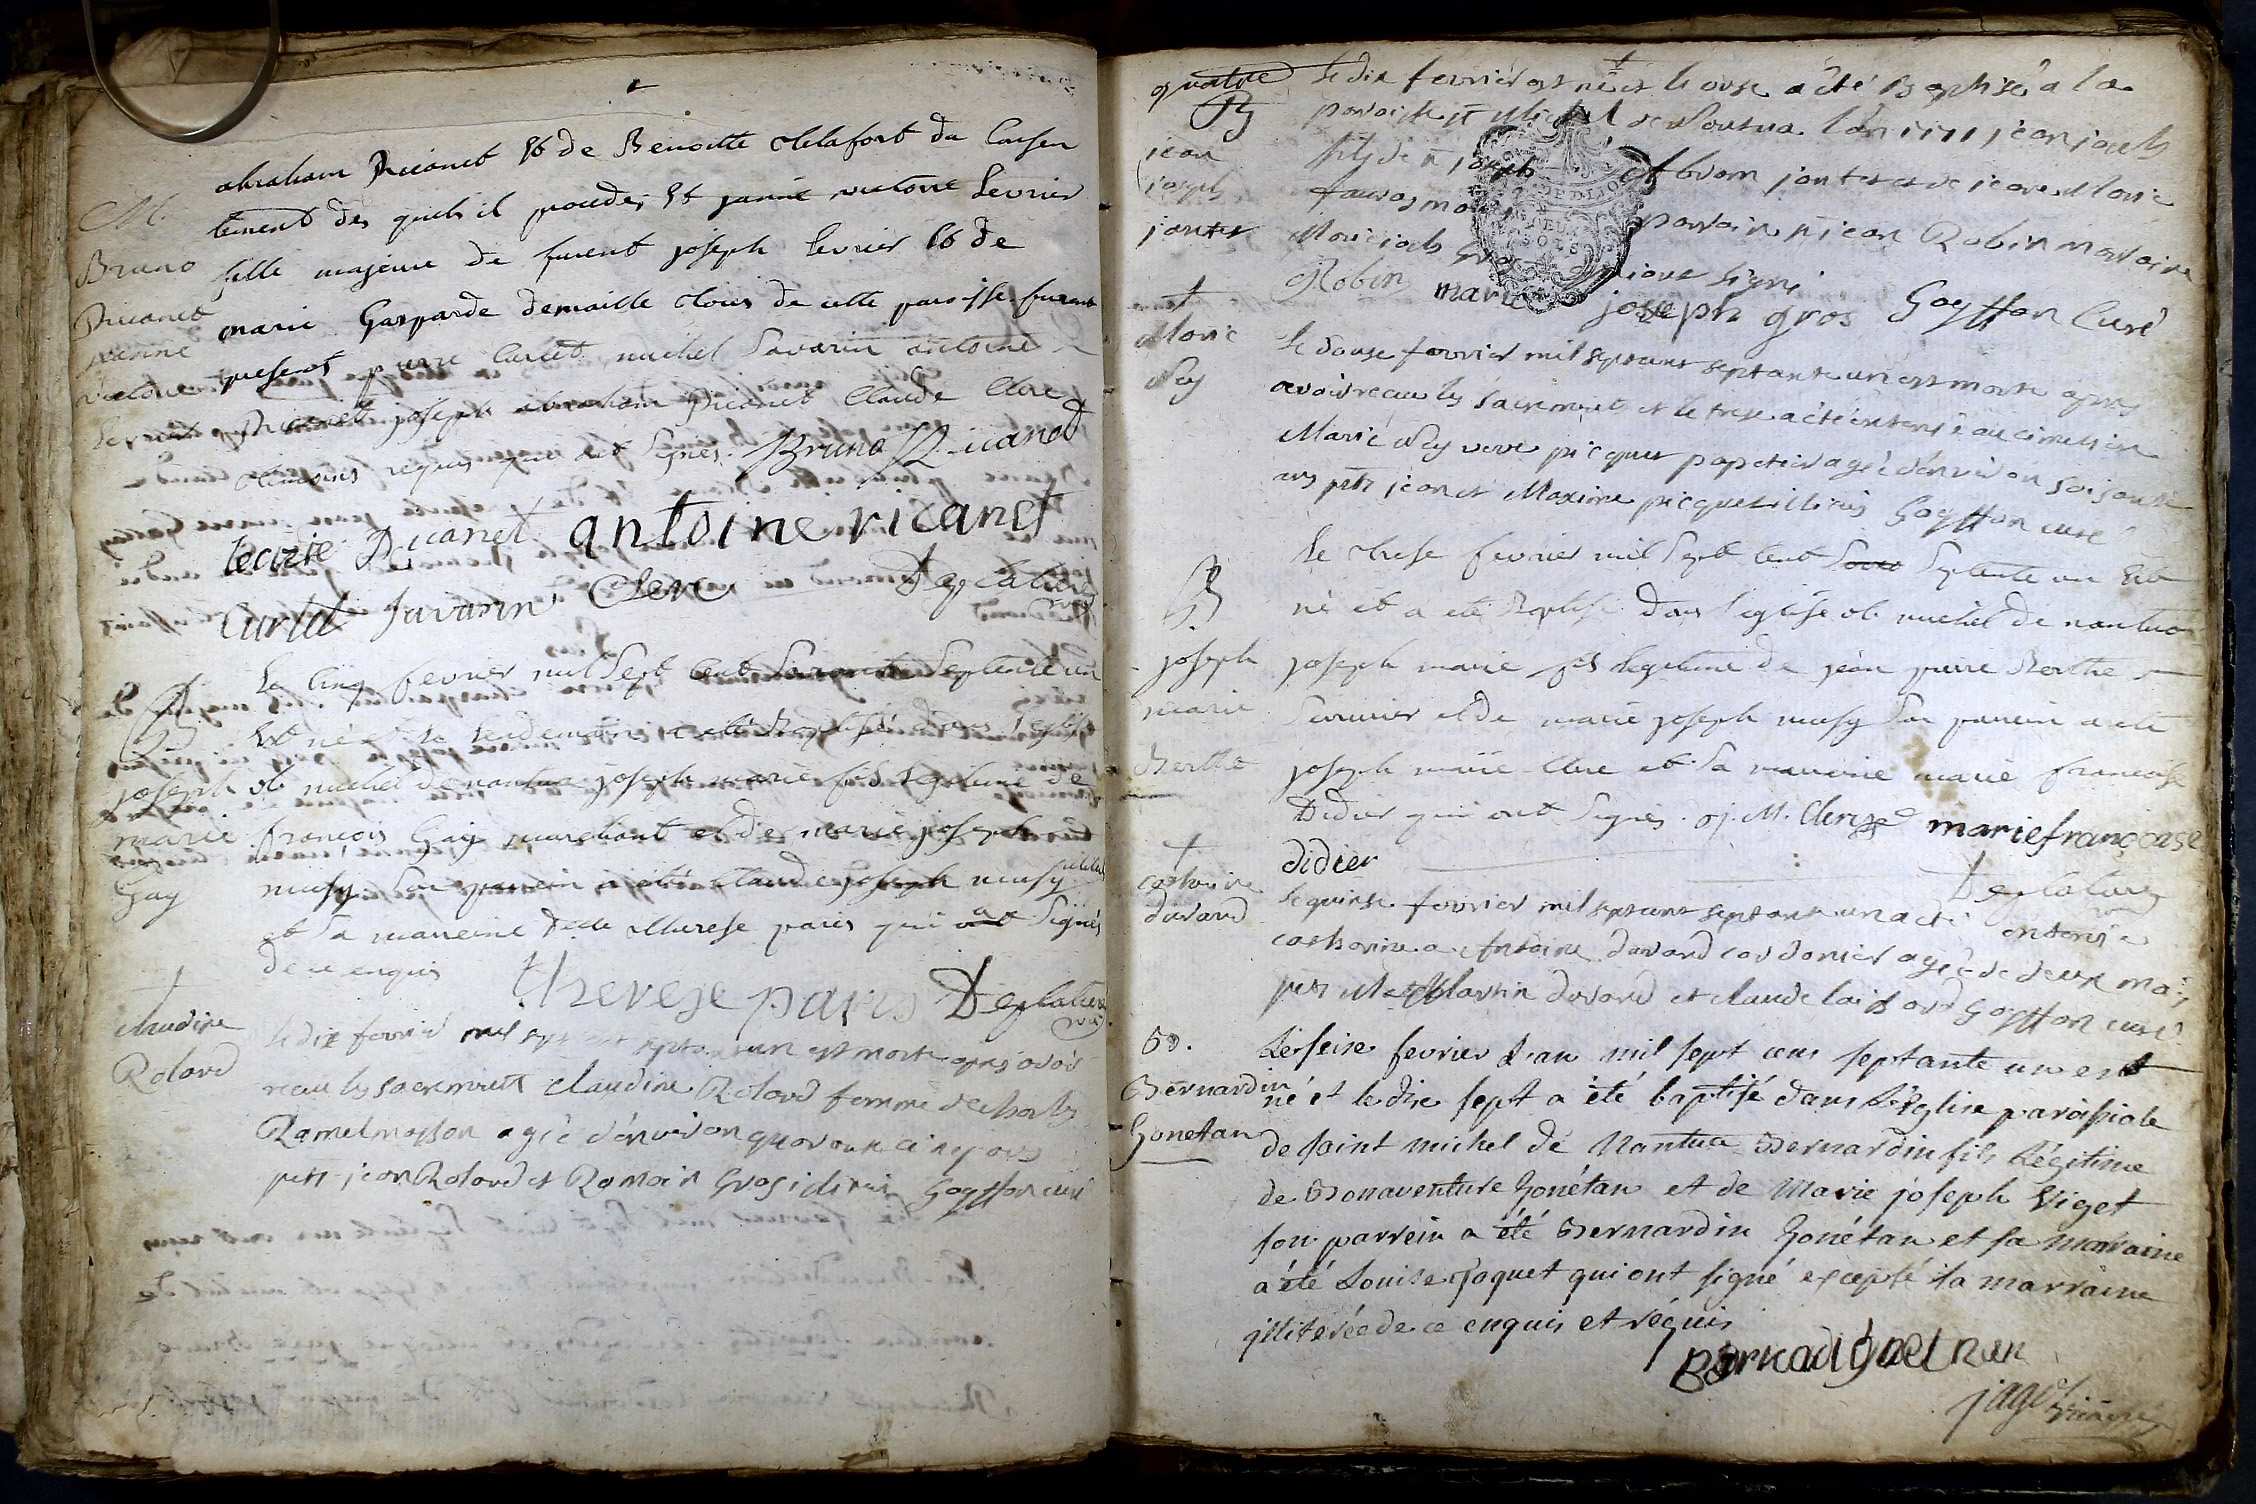 abraham Ricanet & de Benoitte Mlafort du Consen
tement des quels il procede, Et janne victoire Levrier
fille majeure de furent joseph Levrier & de
marie Gasparde demaille tous de cette paroisse furent
presents pierre Curtet michel Savarin antoine
Ricanet joseph abraham Ricanet Claude Clerc
temoins requis qui ont signés. Bruno Ricanet
M.
Bruno
Ricanet
janne
victoire
Levrier
Ricanet antoine ricanet
Curtet Savarin Clerc Deglatiere
Le Cinq fevrier mil Sept Cent Septente un
Est né et le lendemain a eté Baptisé dans l'eglise
st michel de nantua joseph marie fils legitime de
françois Gay marchant et de marie joseph
musy Son parrein a eté Claude joseph musy
et Sa marreine dlle therese paris qui ont Signés
de ce enquis
B
joseph
marie
Gay
therese paris Deglatiere
vic
Le dix fevrier mil sept cent septante un est morte apres avoir
receu les sacrements claudine Rolard femme de
Ramel masson agée d'environ quarante cinq ans
pnts jean Rolard et Romain Gros Goyffon curé
claudine
Rolard
quatre
Le dix fevrier est né et le onse a été Baptisé a la
paroisse st Michel de Nantua l'an 1771 jean joseph
fils de joseph Abram jantet et de jeane Marie
parrain jean Robin marraine
Marie
Robin marie joseph gros Goyffon Curé
B
jean
joseph
jantet
Le douse fevrier mil septcent septante un est morte apres
avoir receu les sacrements et le trese a été enterré au cimetiere
Marie Ney veve picquet papetier agée d'environ soisante
ans pnts jean et Maxime picquet Goyffon curé
Marie
Ney
Le trese fevrier mil Sept Cent Septente un Est
né et a eté Baptisé dans l'eglise st michel de nantua
joseph marie fils legitime de jean pierre Berthe
Serrurier et de marie joseph musy Son parrein a eté
joseph marie Clerc et Sa marreine marie francoise
Didier qui ont Signés. j. M. Clerc mariefrançoise
didier
Deglatiere
vic
B
joseph
marie
Berthet
Le quinse fevrier mil septcent septante un a été enterrée
catherine a Antoine durand cordonier agée de deux mois
pnts Martin durand et claude Goyffon curé
catherine
durand
Le seise fevrier l'an mil sept cens septante un est
né et le dix sept a été baptisé dans l'Eglise paroissiale
de saint michel de Nantua Bernardin fils Légitime
de Bonaventure Gonétan et de Marie joseph Viget
son parrein a été Bernardin Gonétan et sa marraine
a été Louise Jaquet qui ont signé excepté la marraine
illiterée de ce enquis et réquis
B.
Bernardin
Gonetan